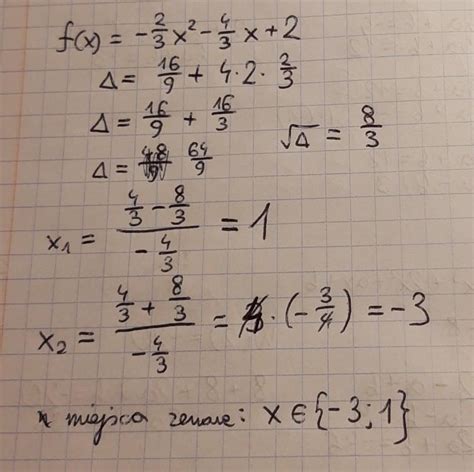 f(x) = -2/3 x² - 4/3 x + 2
Δ = 16/9 + 4·2·2/3
Δ = 16/9 + 16/3
√Δ = 8/3
Δ = 64/9
x₁ = (4/3 - 8/3)/(-4/3) = 1
x₂ = (4/3 + 8/3)/(-4/3) = 4·(-3/4) = -3
miejsca zerowe: x ∈ {-3; 1}